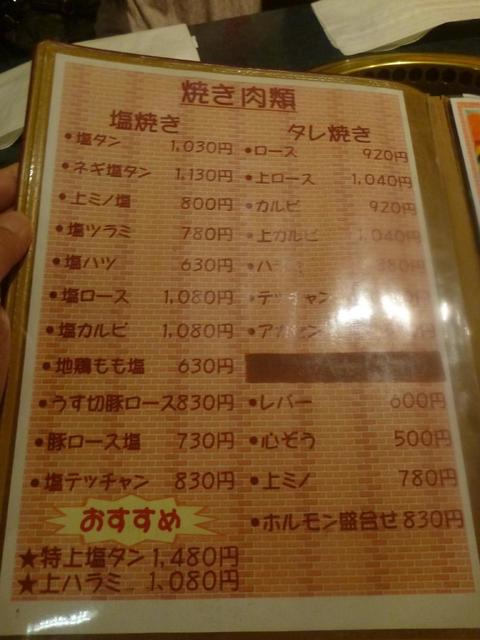 焼き肉類
塩焼き
•塩タン 1,030円
•ネギ塩タン 1,130円
•上ミノ塩 800円
•塩ツラミ 780円
•塩ハツ 630円
•塩ロース 1,080円
•塩カルビ 1,080円
•地鶏もも塩 630円
•うす切豚ロース830円
•豚ロース塩 730円
•塩テッチャン 830円
おすすめ
★特上塩タン 1,480円
★上ハラミ 1,080円
タレ焼き
•ロース 920円
•上ロース 1,040円
•カルビ 920円
•上カルビ 1,040円
•テッチャン
•レバー 600円
•心ぞう 500円
•上ミノ 780円
•ホルモン盛合せ 830円